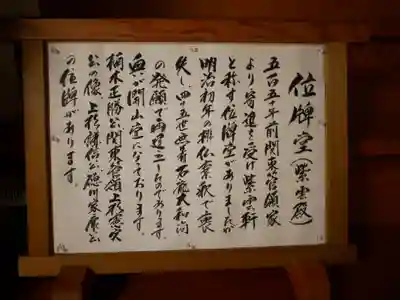 位牌堂(紫雲殿)
五百五十年前関東管領家
より寄進を受け紫雲軒
と称す位牌堂がありましたが
明治初年の排仏棄釈で喪
失し、四十五世
大和尚
の発願で再運
したのであります。
が開山堂になっております。
楠木正勝公関東管領上杉憲実
公の像 上杉謙信公、徳川家康公
の位牌があります。